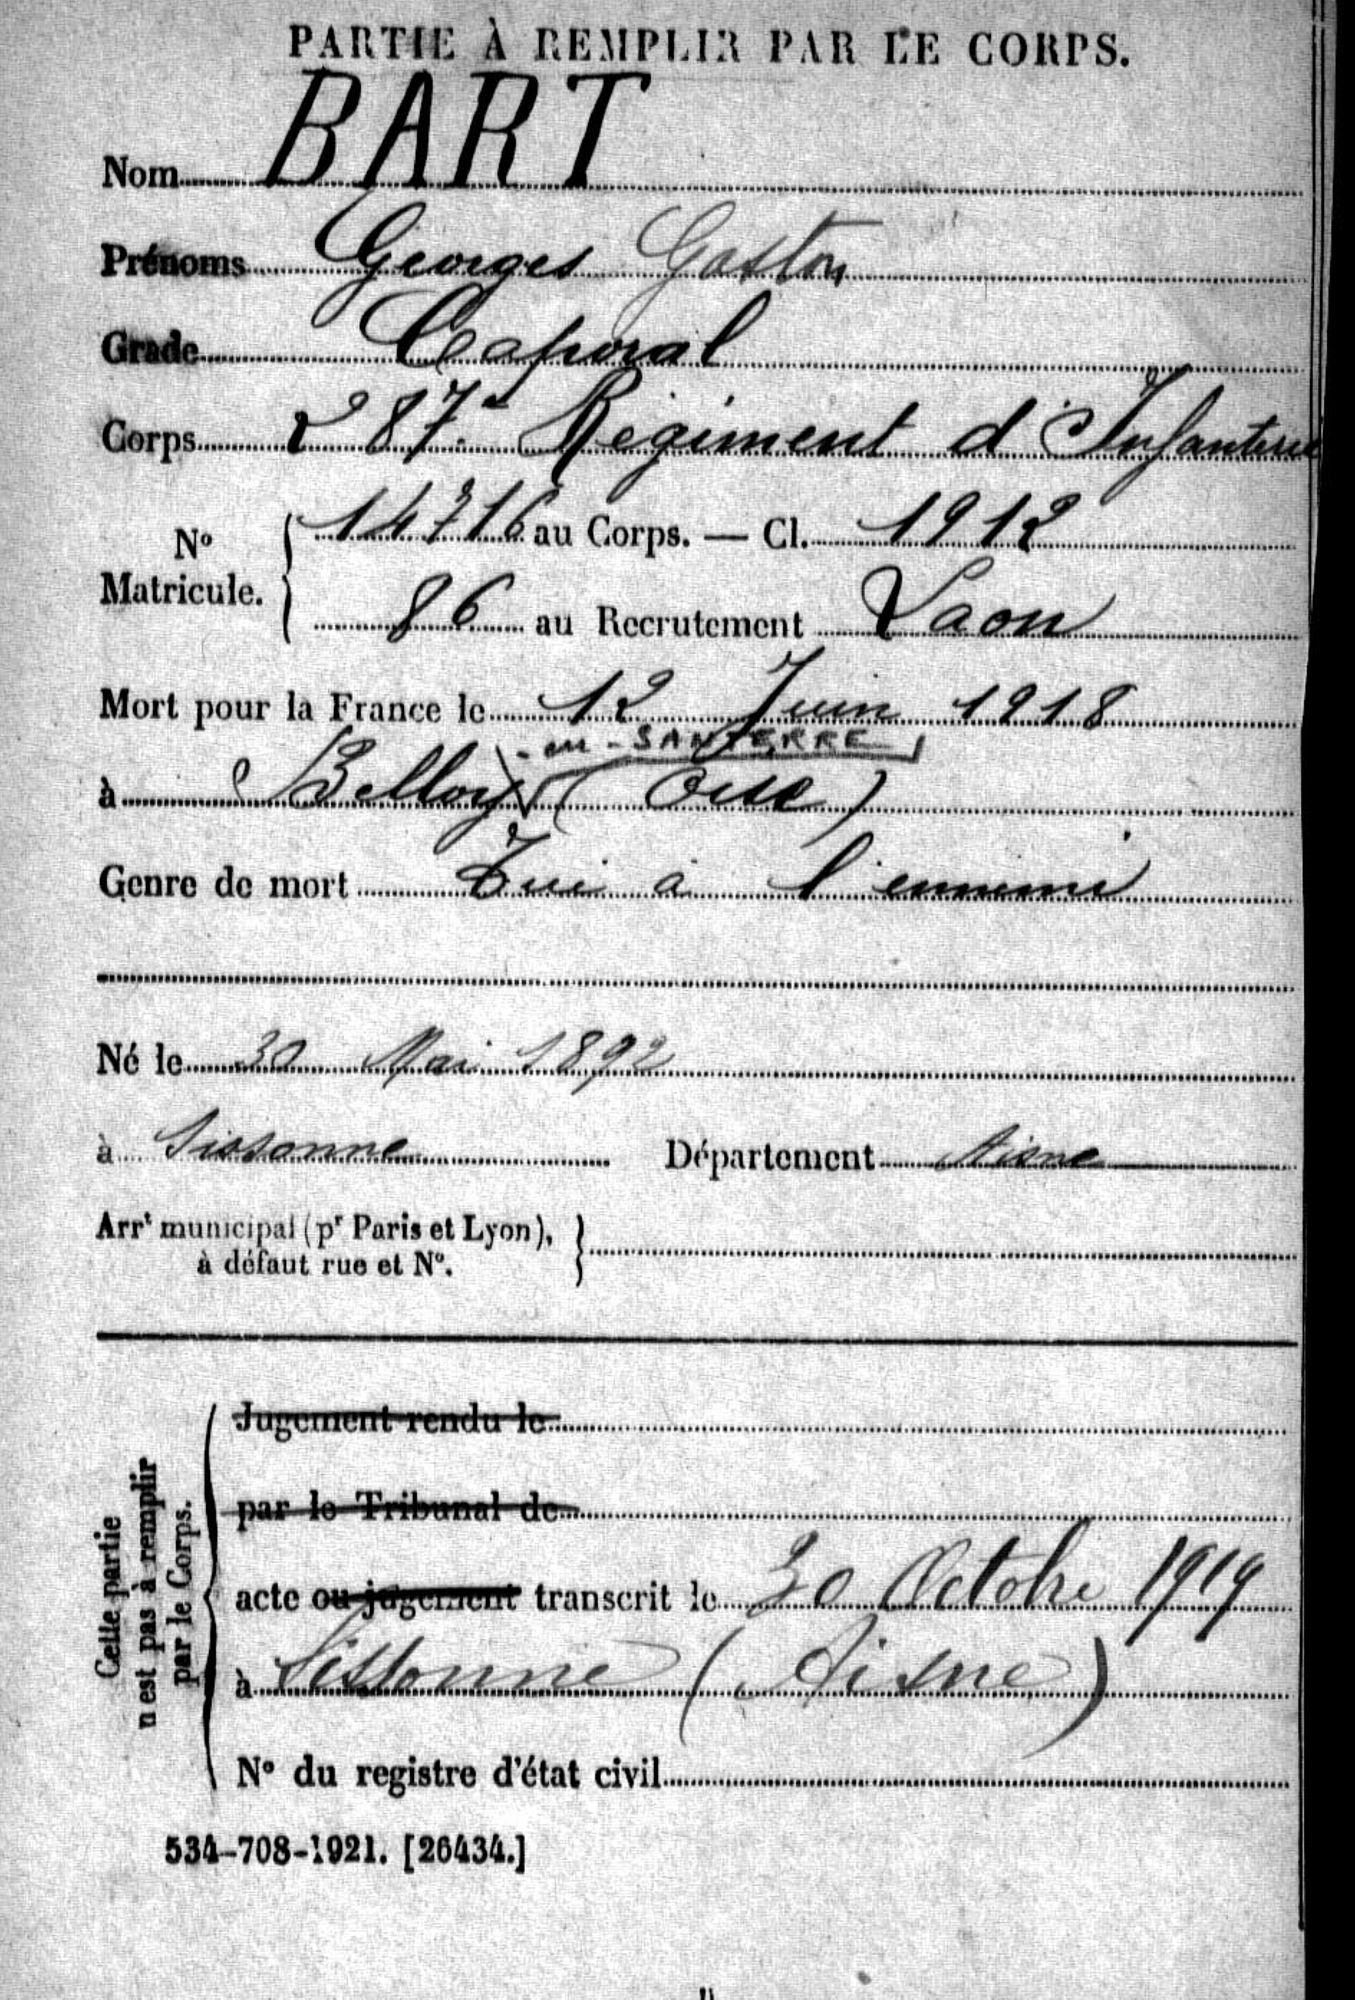 PARTIE À REMPLIR PAR LE CORPS.
Nom BART
Prénoms Georges Gaston
Grade Caporal
Corps 287e Régiment d'Infanterie
No Matricule. { 14716 au Corps. — Cl. 1912
86 au Recrutement Laon
Mort pour la France le 12 Juin 1918
-en-SANTERRE
à Belloy (Oise)
Genre de mort Tué à l'ennemi
Né le 30 Mai 1892
à Sissonne Département Aisne
Arrt municipal (pr Paris et Lyon), à défaut rue et No. }
Cette partie n'est pas à remplir par le Corps.
Jugement rendu le
par le Tribunal de
acte ou jugement transcrit le 30 Octobre 1919
à Sissonne (Aisne)
No du registre d'état civil
534-708-1921. [26434.]